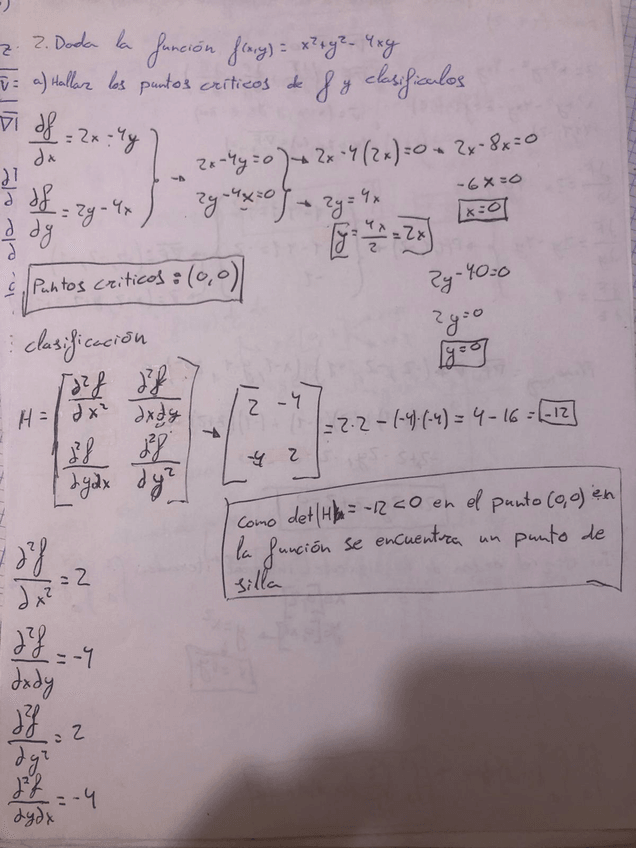 2. Dada la función f(x,y) = x²+y²-4xy
a) Hallar los puntos críticos de f y clasificalos
∂f/∂x = 2x-4y
∂f/∂y = 2y-4x
→ 2x-4y=0
2y-4x=0
→ 2x-4(2x)=0 → 2x-8x=0
-6x=0
x=0
→ 2y=4x
y=4x/2=2x
2y-4·0=0
2y=0
y=0
Puntos críticos = (0,0)
clasificación
H = [∂²f/∂x² ∂²f/∂x∂y
∂²f/∂y∂x ∂²f/∂y²]
→ [2 -4
-4 2] = 2·2-(-4)·(-4) = 4-16 = -12
Como det|H| = -12<0 en el punto (0,0) en
la función se encuentra un punto de
silla
∂²f/∂x² = 2
∂²f/∂x∂y = -4
∂²f/∂y² = 2
∂²f/∂y∂x = -4